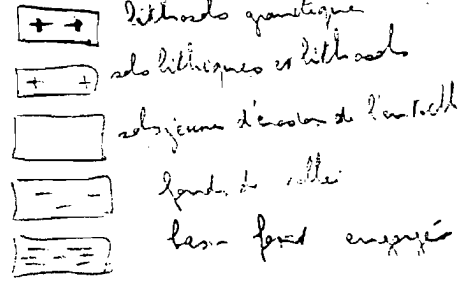 lithosols granitique
sols lithiques et lithosols
sols jeunes d'érosion de
fonds de vallée
bas-fond engorgés